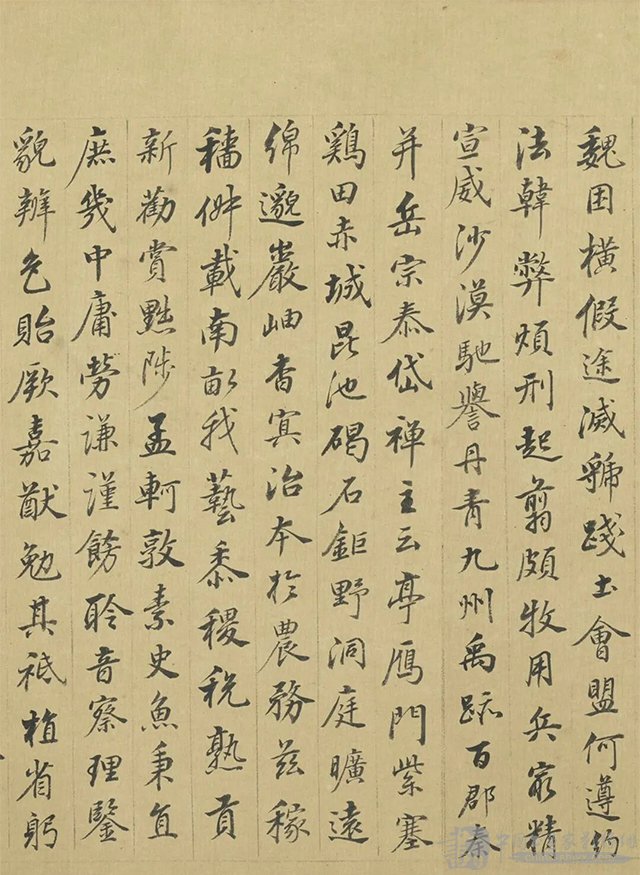 魏困橫假途滅虢踐土會盟何遵約
法韓弊煩刑起翦頗牧用兵最精
宣威沙漠馳譽丹青九州禹跡百郡秦
并岳宗泰岱禪主云亭雁門紫塞
鷄田赤城昆池碣石鉅野洞庭曠遠
綿邈巖岫杳冥治本於農務茲稼
穡俶載南畝我藝黍稷稅熟貢
新勸賞黜陟孟軻敦素史魚秉直
庶幾中庸勞謙謹勑聆音察理鑒
貌辨色貽厥嘉猷勉其祗植省躬